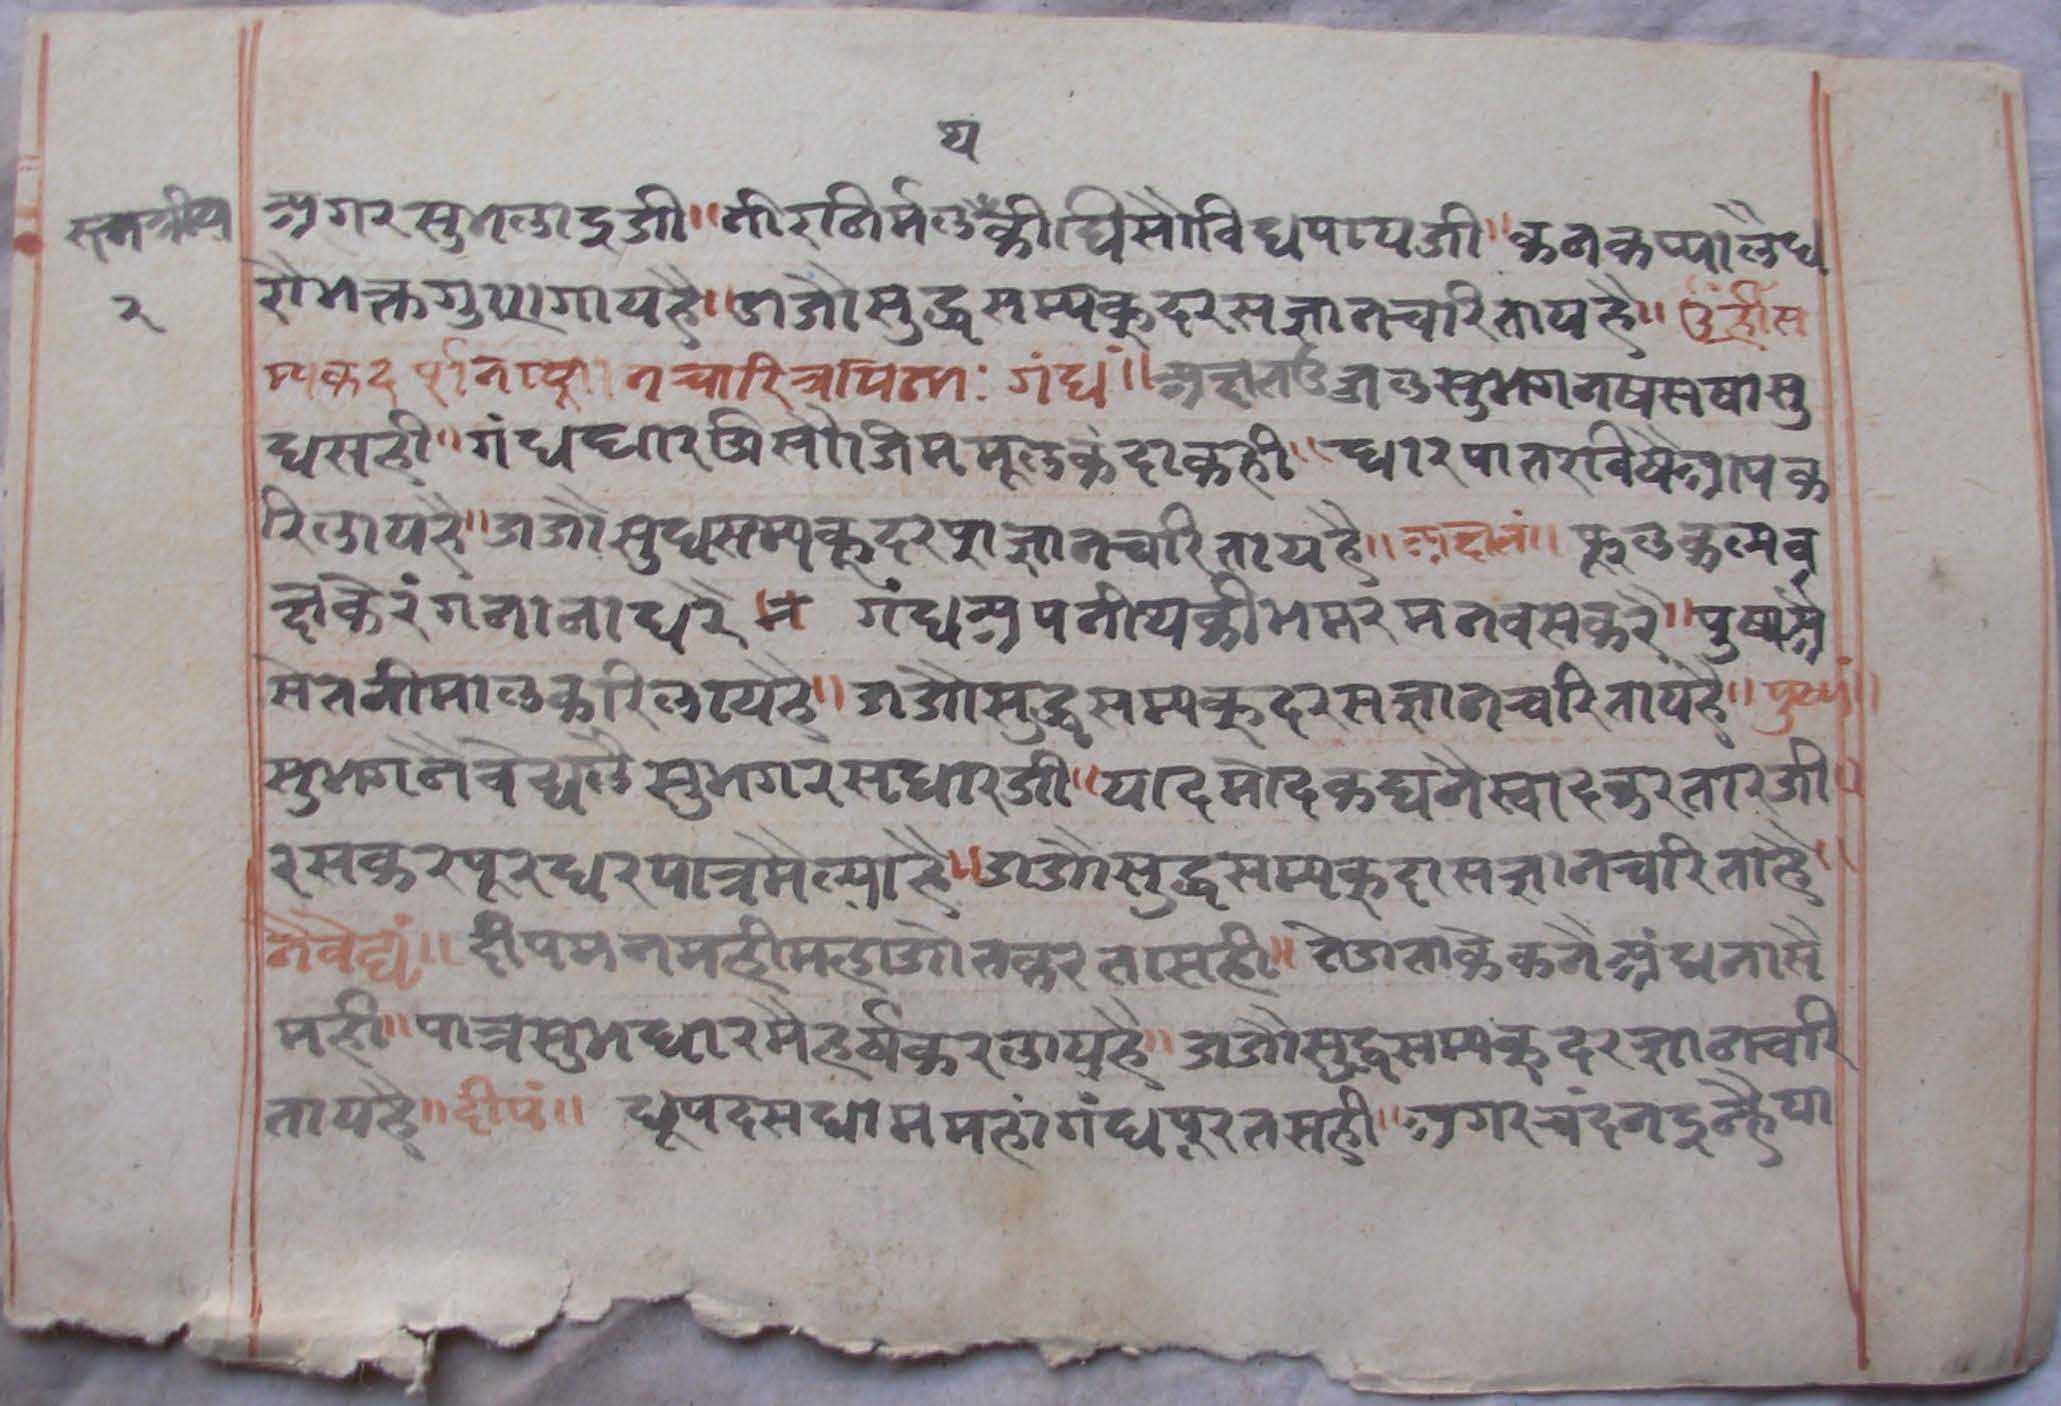 य
रत्नत्रीय
२
अगर सुभलाइजी॥ नीर निर्मल की घिसौ विधपायजी॥ कनक प्यालै ध
रौ भक्त गुण गाय है॥ जजौ सुद्ध सम्यक् दरस ज्ञान चारिताय है॥ ॐ ह्रीं स
म्यक दर्शन ज्ञान चारित्र गंधं॥ अक्षत उजल सुभग नष सषा सु
ध सही॥ गंध धार जिम मूल कंदा कही॥ धार पातर विषै आप क
रि लाय है॥ जजौ सुध सम्यक् दरश ज्ञान चारिताय है॥ अक्षतं॥ फूल कल्पव
क्षकै रंग नाना धरै गंध अपनीयकी भमर मन वस करै॥ पुष्प अै
से तनी माल करि लाय है॥ जजौ सुद्ध सम्यक् दरस ज्ञान चारिताय है॥ पुष्पं॥
सुभग नैवेद्य लै सुभग रस धारजी॥ याद मोदक घनै स्वाद करतारजी॥
रस कर पूर धर पात्रमै ल्या है॥ जजौ सुद्ध सम्यक् दास ज्ञान चारिता है॥
नैवेद्यं॥ दीप मनमही महा जोत करता सही॥ तेज ताकै कनै अंध नासै
मही॥ पात्र सुभ धारमै हर्ष कर लाय है॥ जजौ सुद्ध सम्यक् दर ज्ञान चारि
ताय है॥ दीपं॥ धूप दस धाम महां गंध पूरत सही॥ अगर चंदन इन्है या